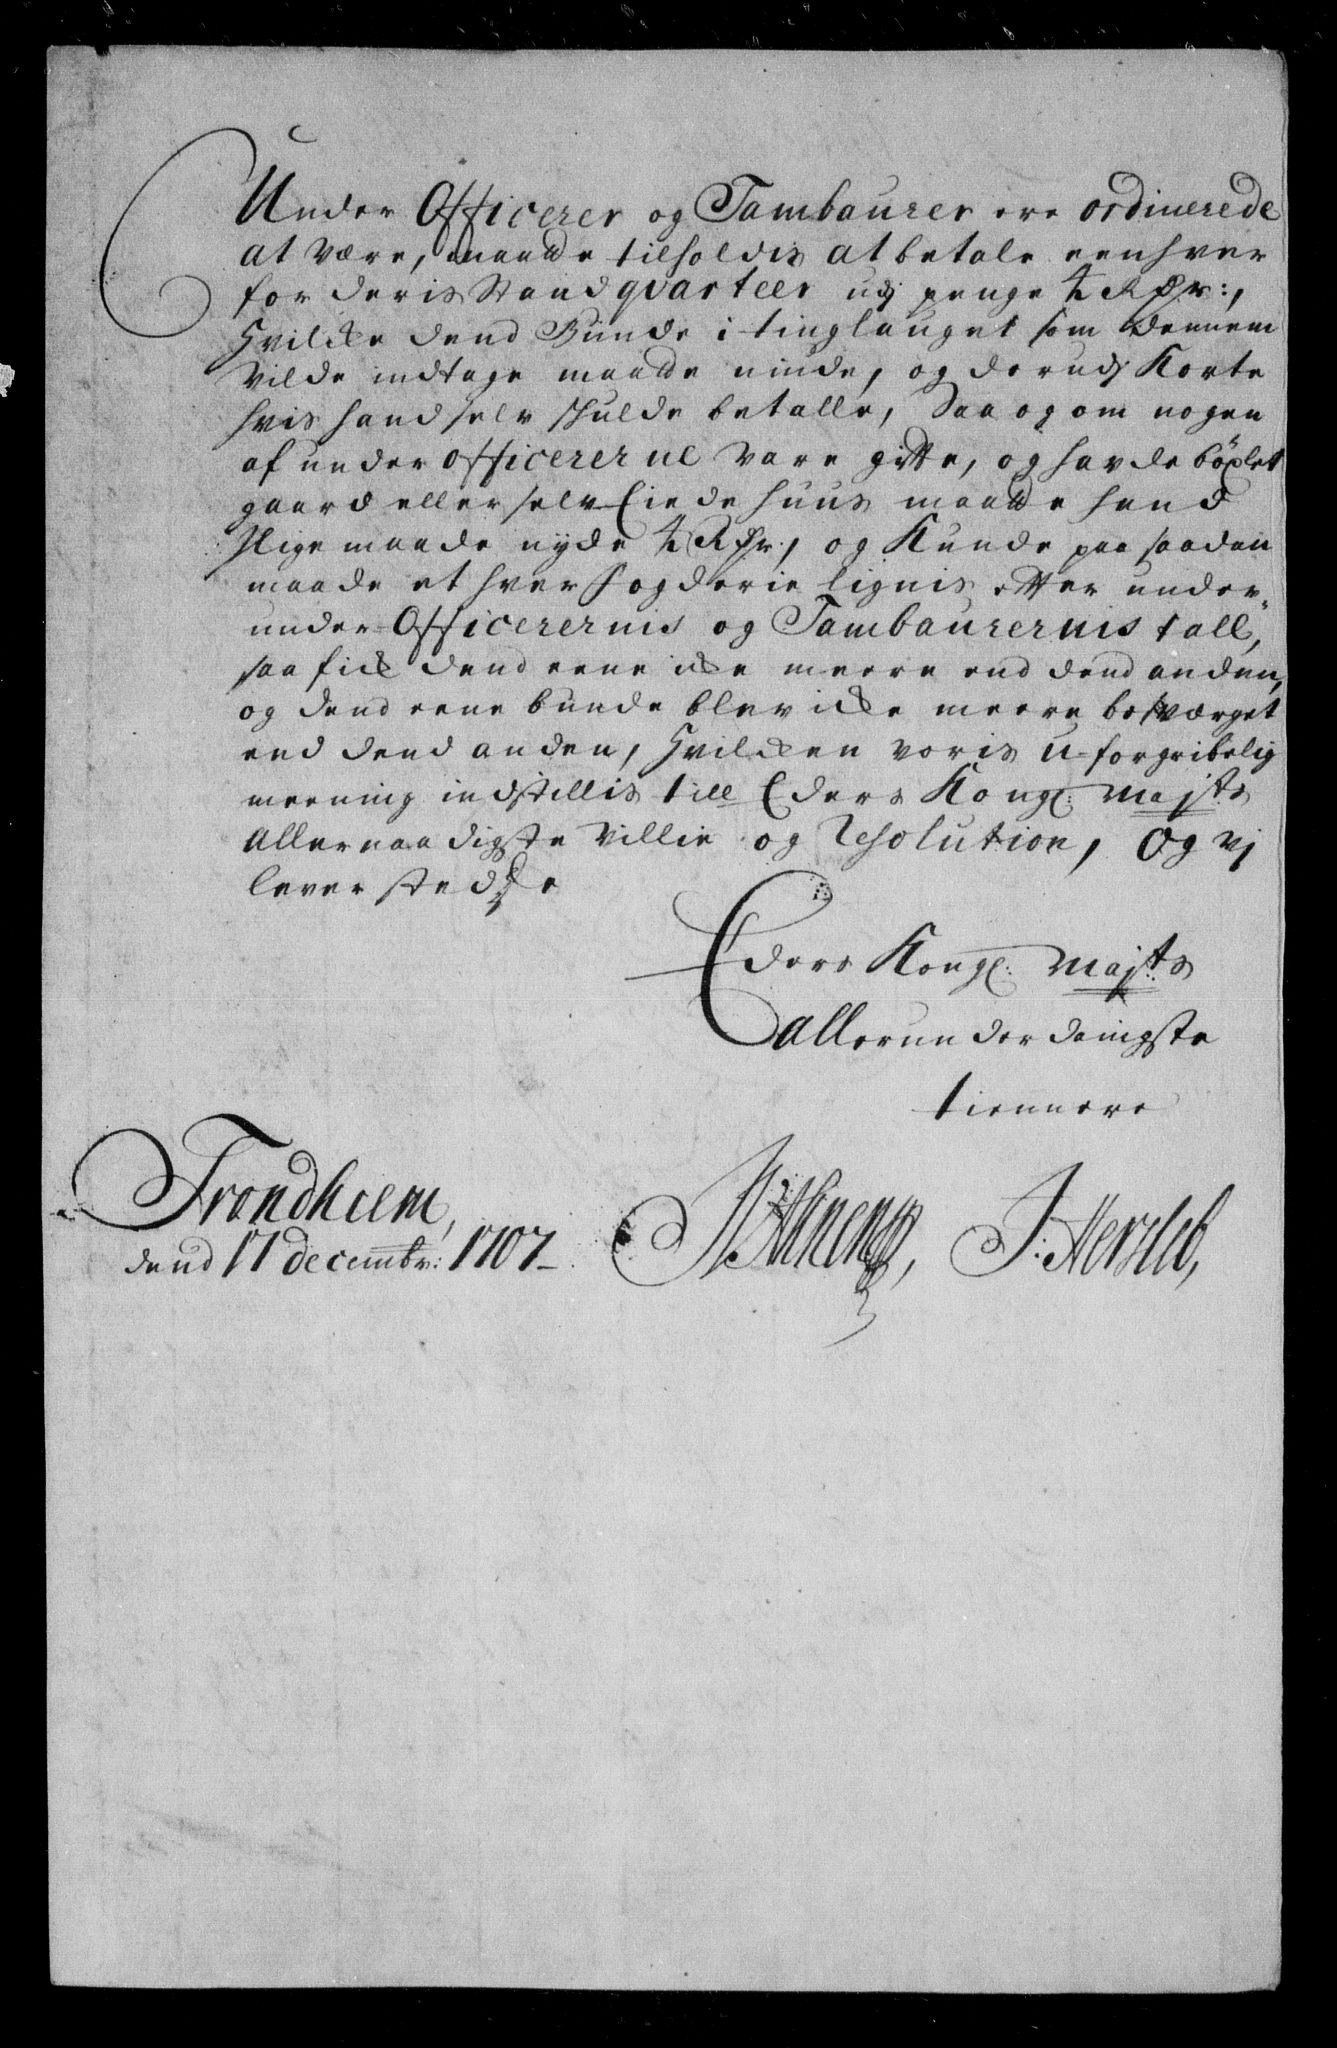 Under Officerer og Tambourer ere ordinerede
at være, maatte tilholdis at betale eenhver
for deris Standqvarteer udj penge 4 Rdr:,
Hvilcke dend Bunde i tinglauget som dennem
vilde indtage maatte niude, og derudj Korte
hvis hand selv skulde betalle, Saa og om nogen
af under officererne vare gifte, og hafde böxlet
gaard eller selv Eiede huus maatte hand
slige maade nyde 4 Rdr, og Kunde paa saadan
maade et hver fogderie lignis efter under-
under Officerernis og Tambaurernis tall,
saa fick dend eene icke meere end dend anden,
og dend eene bunde blev icke meere besværget
end dend anden, Hvilcken voris u-forgribelig
meening indstillis till Eders Kongl: Majts
Allernaadigste Villie og Resolution, Og vj
lever stedse
Eders Kongl: Majts
allerunderdanigste
tiennere
Trondhiem,
dend 17 decembr: 1707 J: Hersleb,